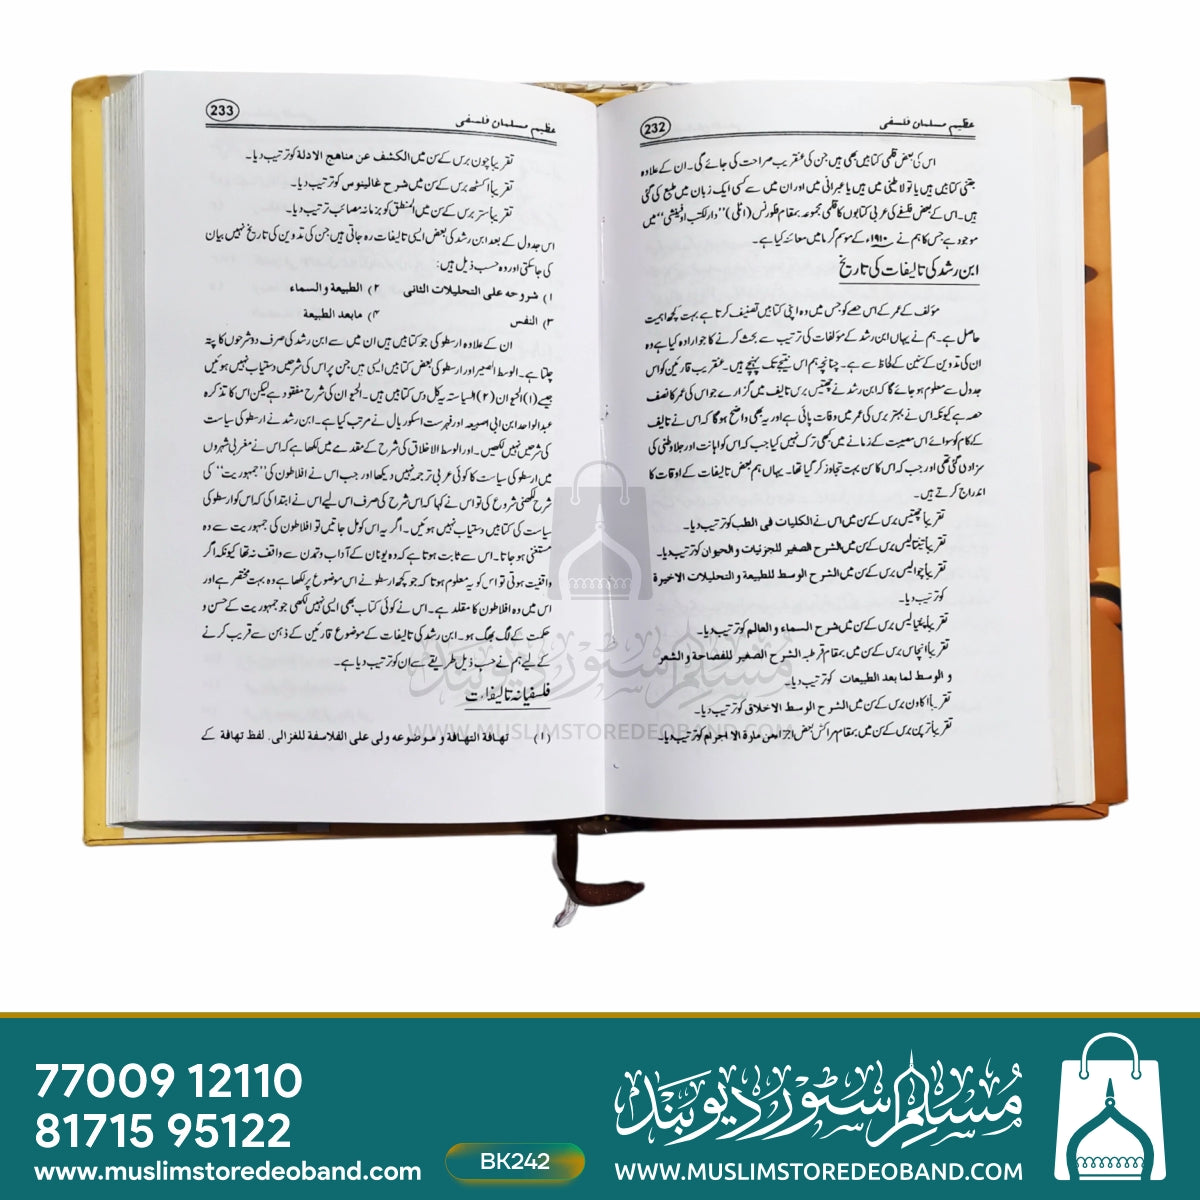 232
عظیم مسلمان فلسفی
اس کی بعض قلمی کتابیں بھی ہیں جن کی عنقریب صراحت کی جائے گی۔ ان کے علاوہ
جتنی کتابیں ہیں یا تو لاطینی میں ہیں یا عبرانی میں اور ان میں سے کسی ایک زبان میں طبع کی گئی
ہیں۔ اس کے بعض فلسفے کی عربی کتابوں کا قلمی مجموعہ بمقام فلورنس (اٹلی) میں
موجود ہے جس کا ہم نے ۱۹۱۰ء کے موسم گرما میں معائنہ کیا ہے۔
ابن رشد کی تالیفات کی تاریخ
مؤلف کے عمر کے اس حصے کو جس میں وہ اپنی کتابیں تصنیف کرتا ہے بہت کچھ اہمیت
حاصل ہے۔ ہم نے یہاں ابن رشد کے مؤلفات کی ترتیب سے بحث کرنے کا جو ارادہ کیا ہے وہ
ان کی تدوین کے سنین کے لحاظ سے ہے۔ چنانچہ ہم اس نتیجے تک پہنچے ہیں۔ عنقریب قارئین کو اس
جدول سے معلوم ہو جائے گا کہ ابن رشد نے چھتیس برس تالیف میں گزارے جو اس کی عمر کا نصف
حصہ ہے کیونکہ اس نے بہتر برس کی عمر میں وفات پائی ہے اور یہ بھی واضح ہو گا کہ اس نے تالیف
کے کام کو سوائے اس مصیبت کے زمانے میں کبھی ترک نہیں کیا جب کہ اس کو اہانت اور جلاوطنی کی
سزا دی گئی تھی اور جب کہ اس کا سن بہت تجاوز کر گیا تھا۔ یہاں ہم بعض تالیفات کے اوقات کا
اندراج کرتے ہیں۔
تقریباً چھتیس برس کے سن میں اس نے الکلیات فی الطب کو ترتیب دیا۔
تقریباً تینتالیس برس کے سن میں الشرح الصغیر للجزئیات و الحیوان کو ترتیب دیا۔
تقریباً چوالیس برس کے سن میں الشرح الوسط للطبیعة و التحلیلات الاخیرة
کو ترتیب دیا۔
تقریباً پینتالیس برس کے سن میں شرح السماء و العالم کو ترتیب دیا۔
تقریباً انچاس برس کے سن میں بمقام قرطبہ الشرح الصغیر للفصاحة و الشعر
و الوسط لما بعد الطبیعات کو ترتیب دیا۔
تقریباً اکاون برس کے سن میں الشرح الوسط الاخلاق کو ترتیب دیا۔
تقریباً ترپن برس کے سن میں بمقام مراکش بعض اجزا من مادة الاجرام کو ترتیب دیا۔
233
عظیم مسلمان فلسفی
تقریباً چون برس کے سن میں الکشف عن مناهج الادلة کو ترتیب دیا۔
تقریباً اکسٹھ برس کے سن میں شرح غالینوس کو ترتیب دیا۔
تقریباً ستر برس کے سن میں المنطق کو بزمانہ مصائب ترتیب دیا۔
اس جدول کے بعد ابن رشد کی بعض ایسی تالیفات رہ جاتی ہیں جن کی تدوین کی تاریخ نہیں بیان
کی جا سکتی اور وہ حسب ذیل ہیں:
۱) شروحه علی التحلیلات الثانی ۲) الطبیعة والسماء
۳) النفس ۴) مابعد الطبیعة
ان کے علاوہ ارسطو کی جو کتابیں ہیں ان میں سے ابن رشد کی صرف دو شرحوں کا پتہ
چلتا ہے۔ الوسط الصغیر اور ارسطو کی بعض کتابیں ایسی ہیں جن پر اس کی شرحیں دستیاب نہیں ہوئیں
جیسے (۱) الحیوان (۲) السیاستہ یہ کل دس کتابیں ہیں۔ الحیوان کی شرح مفقود ہے لیکن اس کا تذکرہ
عبدالواحد ابن ابی اصیبعہ اور فہرست اسکوریال نے مرتب کیا ہے۔ ابن رشد نے ارسطو کی سیاست
کی شرحیں نہیں لکھیں۔ اور الوسط الاخلاق کی شرح کے مقدمے میں لکھا ہے کہ اس نے مغربی شہروں
میں ارسطو کی سیاست کا کوئی عربی ترجمہ نہیں دیکھا اور جب اس نے افلاطون کی ”جمہوریت“ کی
شرح لکھنی شروع کی تو اس نے کہا کہ اس شرح کی صرف اس لیے اس نے ابتدا کی کہ اس کو ارسطو کی
سیاست کی کتابیں دستیاب نہیں ہوئیں۔ اگر یہ اس کو مل جاتیں تو افلاطون کی جمہوریت سے وہ
مستغنی ہو جاتا۔ اس سے ثابت ہوتا ہے کہ وہ یونان کے آداب و تمدن سے واقف نہ تھا کیونکہ اگر
واقفیت ہوتی تو اس کو یہ معلوم ہوتا کہ جو کچھ ارسطو نے اس موضوع پر لکھا ہے وہ بہت مختصر ہے اور
اس میں وہ افلاطون کا مقلد ہے۔ اس نے کوئی کتاب بھی ایسی نہیں لکھی جو جمہوریت کے حسن و
حکمت کے لگ بھگ ہو۔ ابن رشد کی تالیفات کے موضوع قارئین کے ذہن سے قریب کرنے
کے لیے ہم نے حسب ذیل طریقے سے ان کو ترتیب دیا ہے۔
فلسفیانہ تالیفات
(۱) تهافة التهافة و موضوعه ولی علی الفلاسفة للغزالی. لفظ تهافة کے
مسلم سٹور دیوبند
WWW.MUSLIMSTOREDEOBAND.COM
77009 12110
81715 95122
www.muslimstoredeoband.com
BK242
مسلم سٹور دیوبند
WWW.MUSLIMSTOREDEOBAND.COM